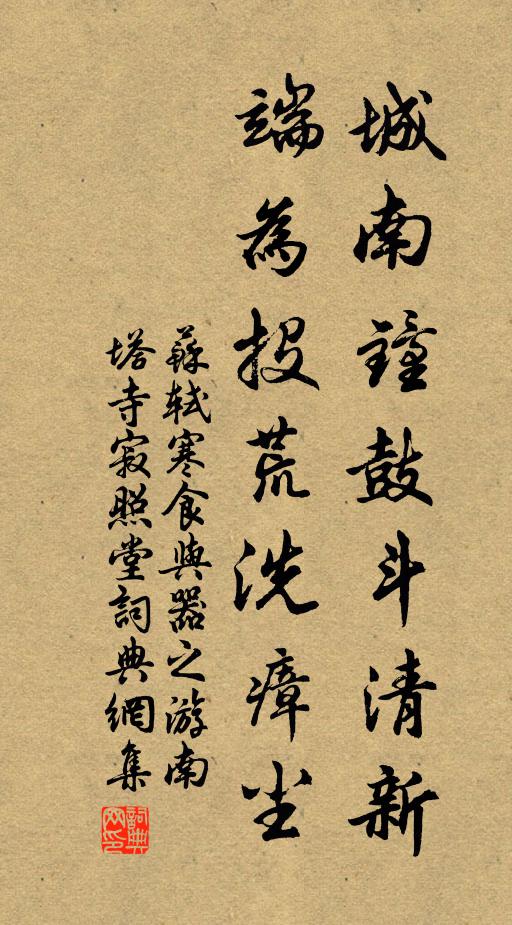 城南鐘鼓斗清新
端為投荒洗瘴尘
蘇軾寒食與器之游南
塔寺寂照堂詞典網集
詞典
网印